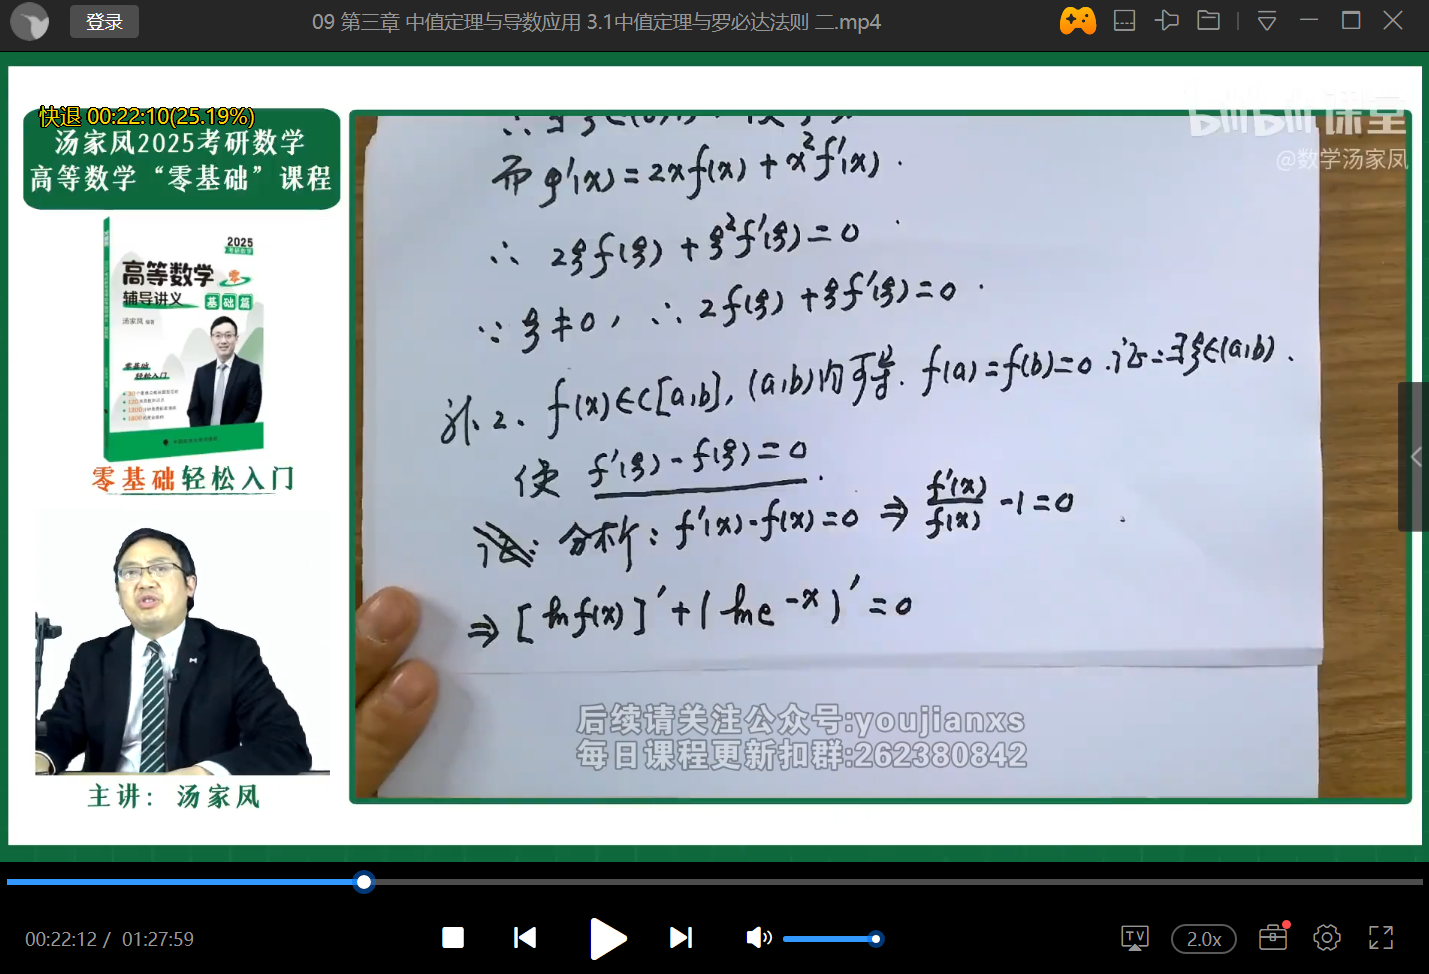 登录
09 第三章 中值定理与导数应用 3.1中值定理与罗必达法则 二.mp4
快退 00:22:10(25.19%)
汤家凤2025考研数学
高等数学“零基础”课程
2025
高等数学 零
辅导讲义 基础篇
汤家凤
零基础
轻松入门
零基础轻松入门
主讲：汤家凤
bilibili课堂
@数学汤家凤
而 φ'(x)=2xf(x)+x²f'(x).
∴ 2ξf(ξ)+ξ²f'(ξ)=0
∵ ξ≠0, ∴ 2f(ξ)+ξf'(ξ)=0.
例2、f(x)∈C[a,b],(a,b)内可导. f(a)=f(b)=0.证:∃ξ∈(a,b).
使 f'(ξ)-f(ξ)=0.
证: 分析: f'(x)-f(x)=0 ⇒ f'(x)/f(x) -1=0
⇒ [ln f(x)]'+(ln e^-x)'=0
后续请关注公众号:youjianxs
每日课程更新扣群:262380842
00:22:12 / 01:27:59
TV
2.0x